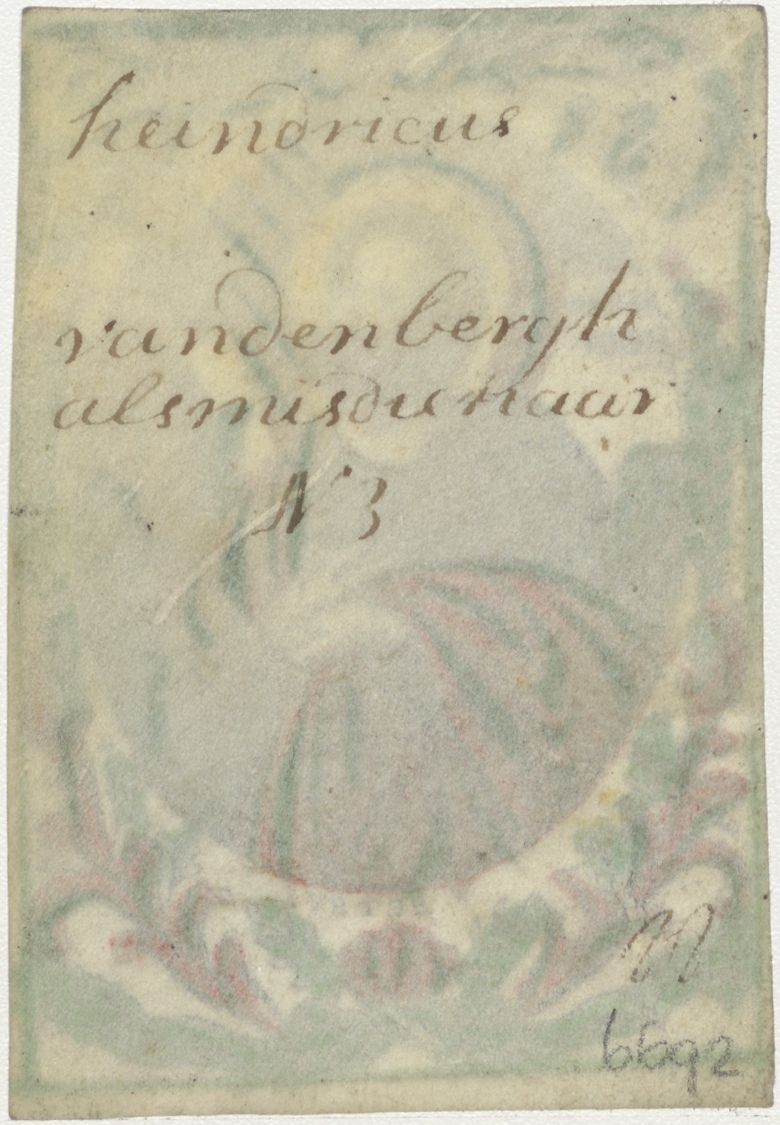 heindricus
vandenbergh
alsmisdienaar
N 3
6692